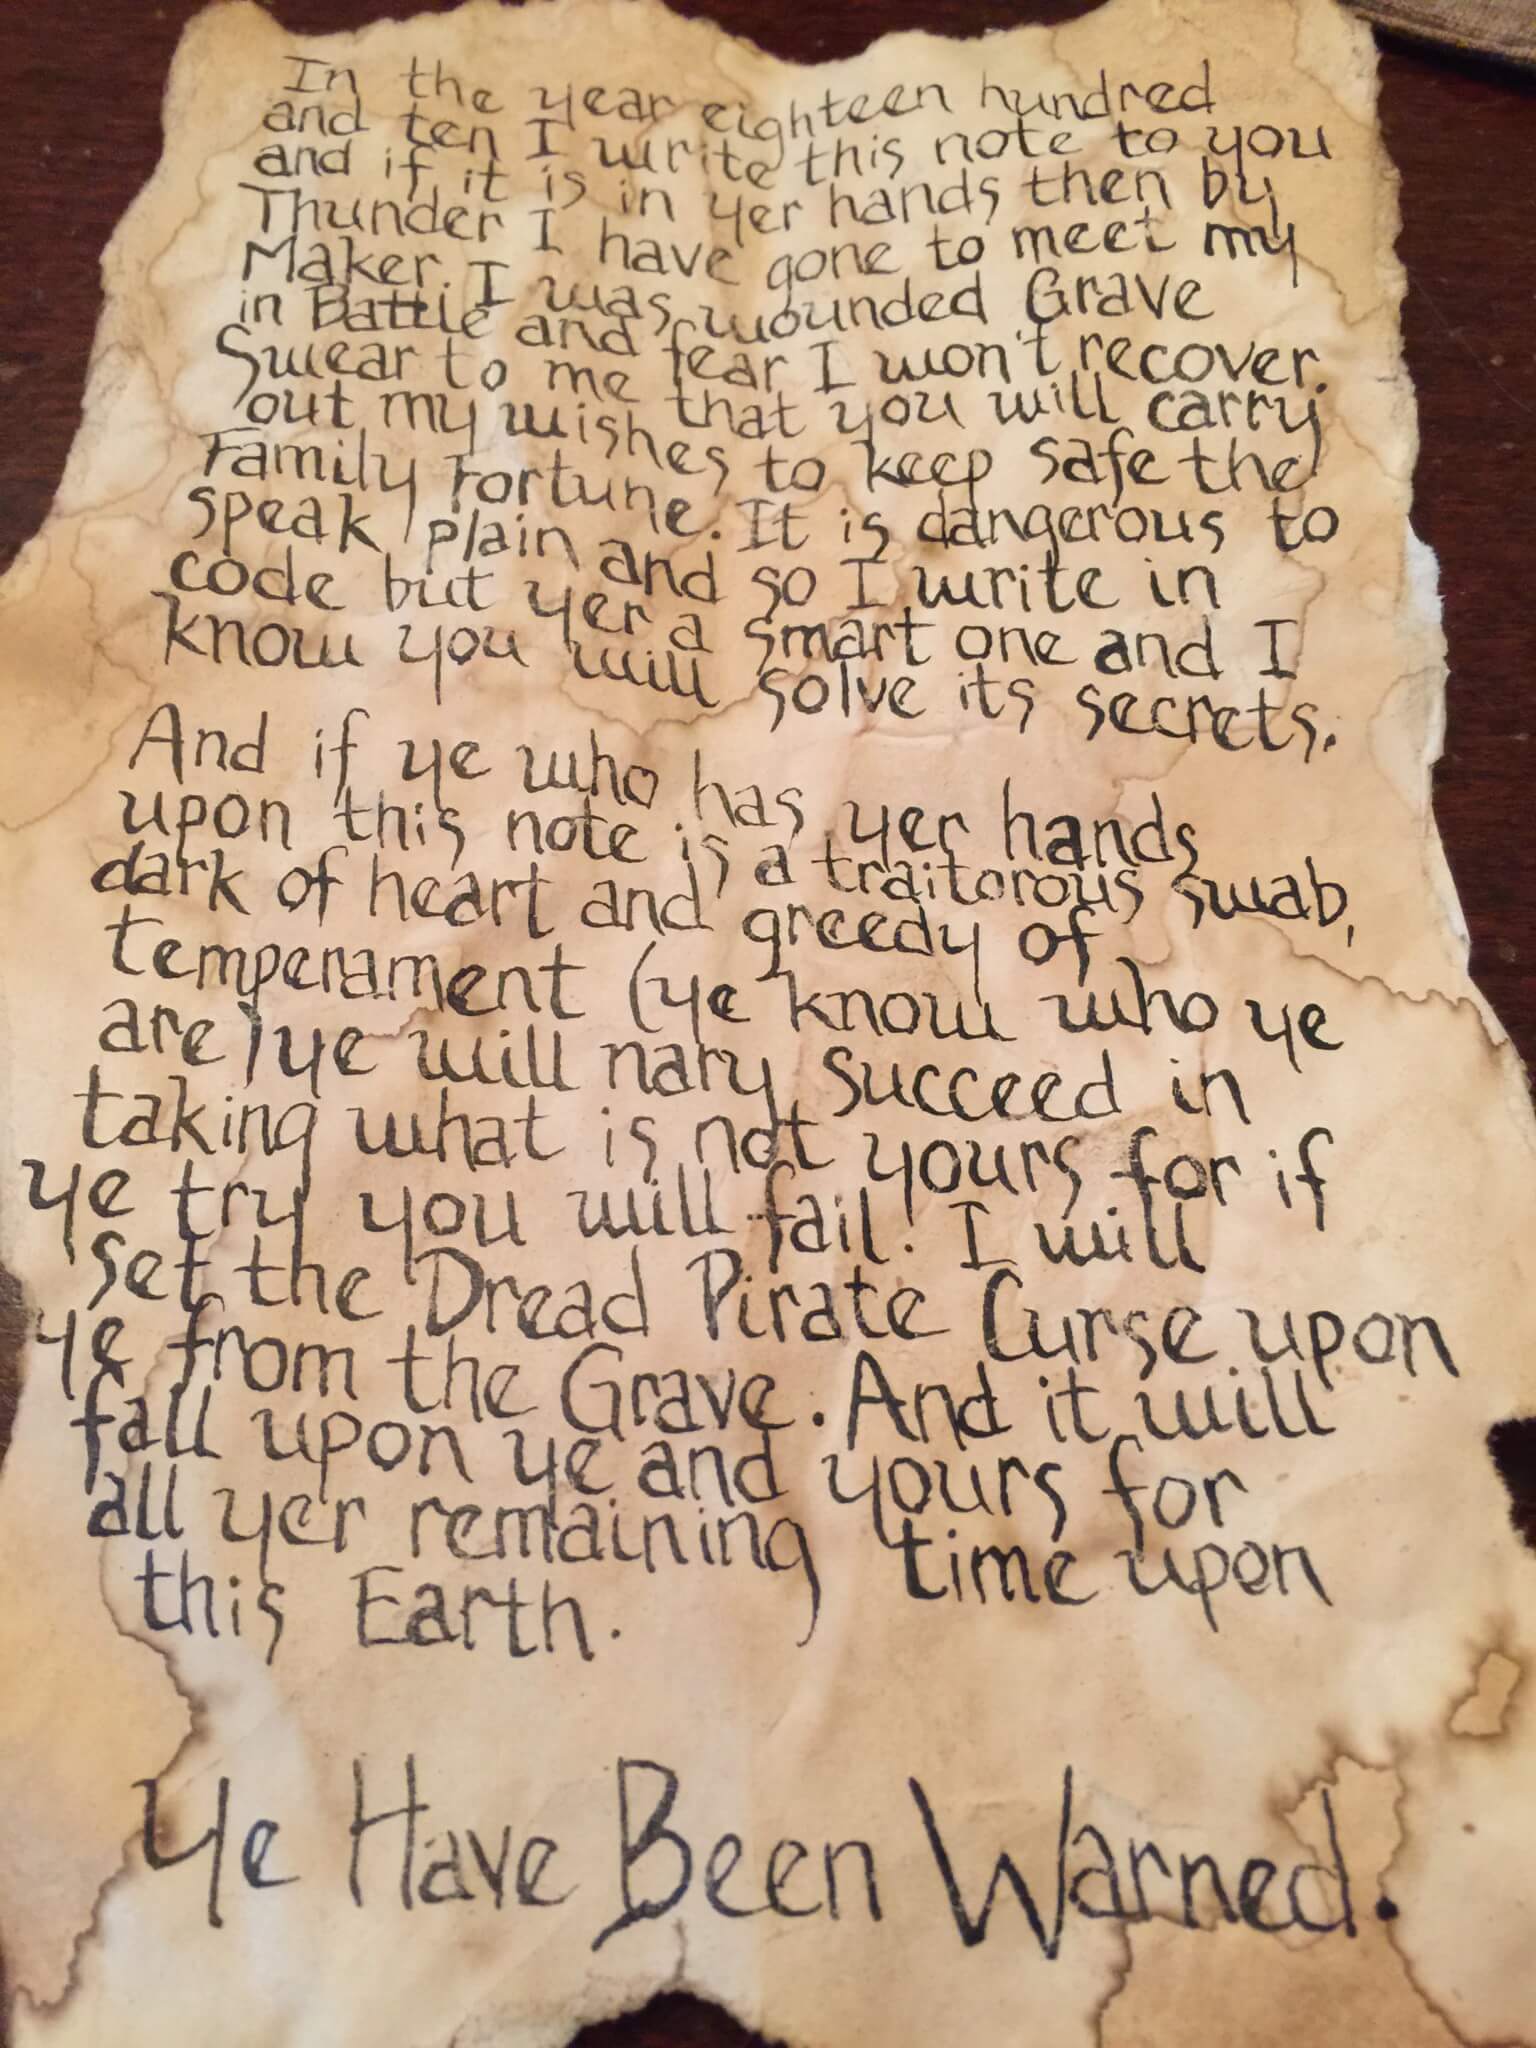 In the year eighteen hundred
and ten I write this note to you
and if it is in yer hands then by
Thunder I have gone to meet my
Maker. I was wounded Grave
in Battle and fear I won't recover.
Swear to me that you will carry
out my wishes to keep safe the
Family Fortune. It is dangerous to
speak plain and so I write in
code but yer a smart one and I
know you will solve its secrets.
And if ye who has yer hands
upon this note is a traitorous swab,
dark of heart and greedy of
temperament (ye know who ye
are) ye will nary succeed in
taking what is not yours for if
ye try you will fail! I will
set the Dread Pirate Curse upon
ye from the Grave. And it will
fall upon ye and yours for
all yer remaining time upon
this Earth.
Ye Have Been Warned.